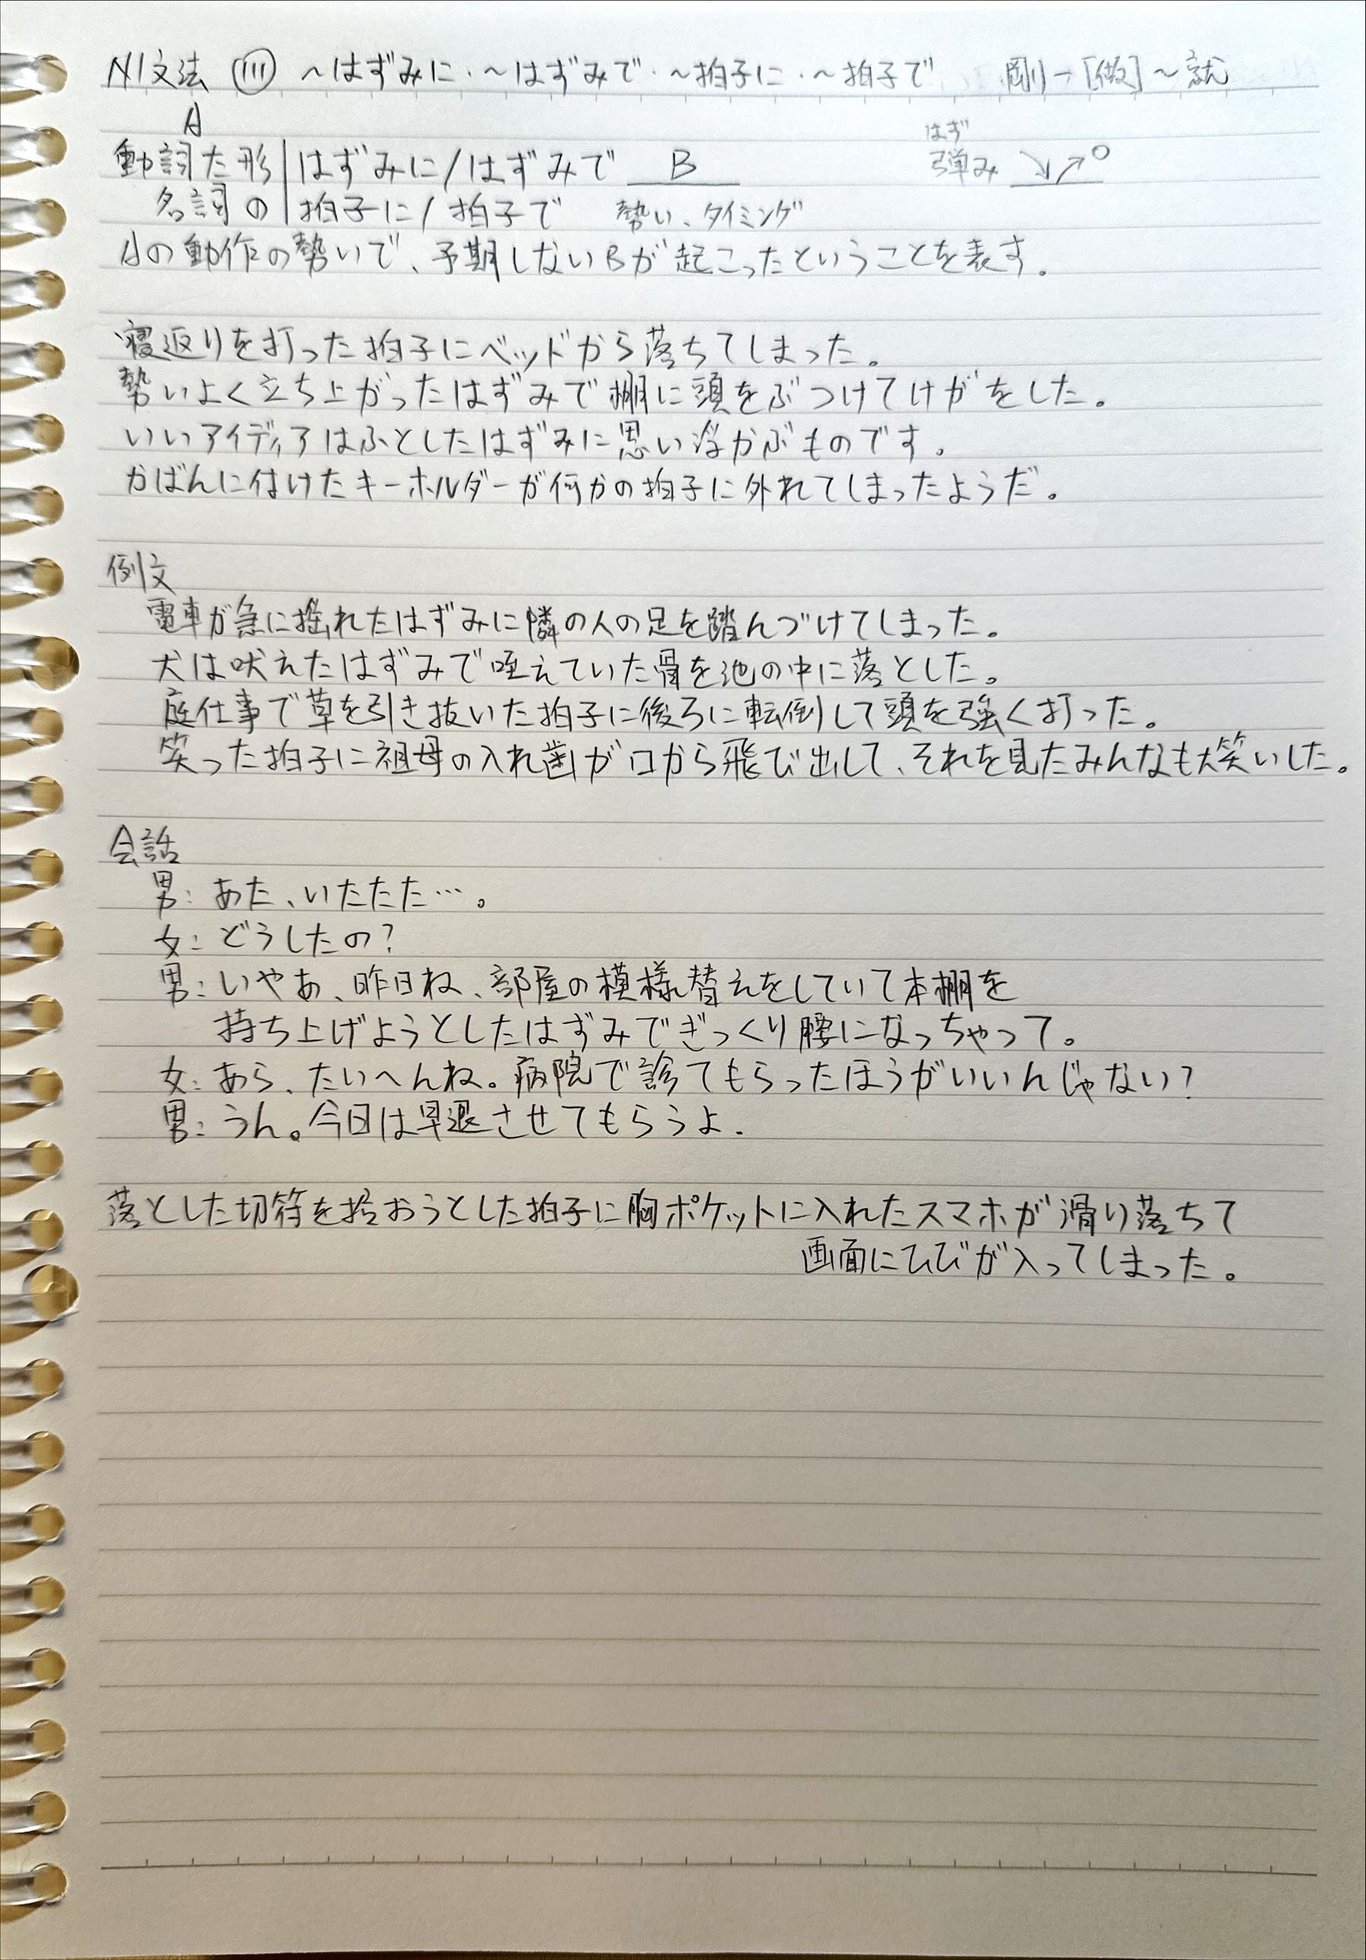 N1文法 ⑪ ～はずみに・～はずみで・～拍子に・～拍子で 剛→[做]～就
A
動詞た形 はずみに/はずみで B
はず
弾み
名詞の 拍子に/拍子で 勢い、タイミング
Aの動作の勢いで、予期しないBが起こったということを表す。
寝返りを打った拍子にベッドから落ちてしまった。
勢いよく立ち上がったはずみで棚に頭をぶつけてけがをした。
いいアイディアはふとしたはずみに思い浮かぶものです。
かばんに付けたキーホルダーが何かの拍子に外れてしまったようだ。
例文
電車が急に揺れたはずみに隣の人の足を踏んづけてしまった。
犬は吠えたはずみで咥えていた骨を池の中に落とした。
庭仕事で草を引き抜いた拍子に後ろに転倒して頭を強く打った。
笑った拍子に祖母の入れ歯が口から飛び出して、それを見たみんなも大笑いした。
会話
男：あた、いたたた…。
女：どうしたの？
男：いやあ、昨日ね、部屋の模様替えをしていて本棚を
持ち上げようとしたはずみでぎっくり腰になっちゃって。
女：あら、たいへんね。病院で診てもらったほうがいいんじゃない？
男：うん。今日は早退させてもらうよ．
落とした切符を拾おうとした拍子に胸ポケットに入れたスマホが滑り落ちて
画面にひびが入ってしまった。